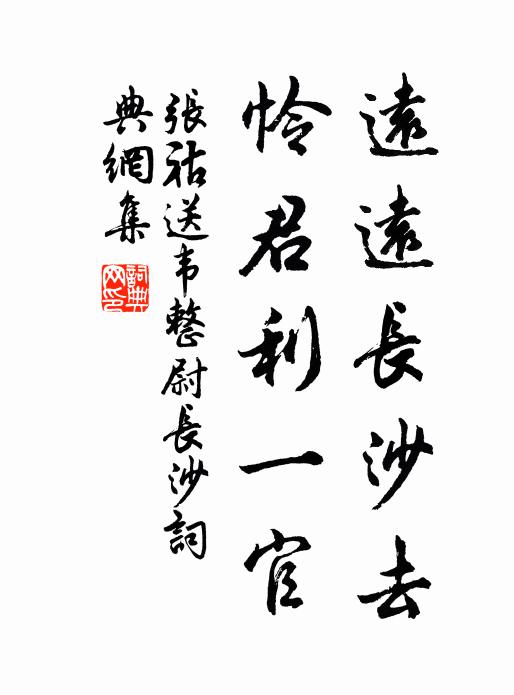 遠遠長沙去
怜君利一官
張祜送韦整尉長沙詞
典網集
詞典网印